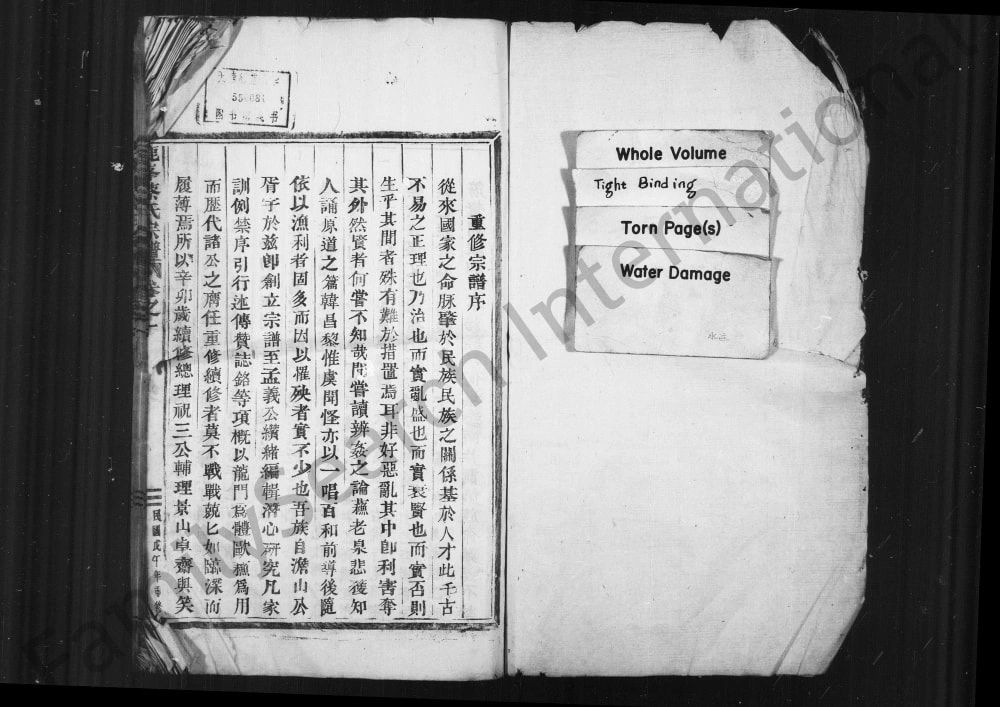 重修宗譜序
從來國家之命脈肇於民族民族之關係基於人才此千古
不易之正理也乃治也而實亂盛也而實衰賢也而實否則
生乎其間者殊有難於措置焉耳非好惡亂其中卽利害奪
其外然賢者何嘗不知哉間嘗讀辨姦之論蘇老泉悲獲知
人誦原道之篇韓昌黎惟虞聞怪亦以一唱百和前導後隨
依以漁利者固多而因以罹殃者實不少也吾族自澹山公
胥宇於茲卽創立宗譜至孟義公纘緒編輯潛心研究凡家
訓例禁序引行述傳贊誌銘等項概以龍門爲體歐蘇爲用
而歷代諸公之膺任重修續修者莫不戰戰兢匕如臨深而
履薄焉所以辛卯歲續修總理祝三公輔理景山卓齋與笑
氏宗譜
卷之
民國戊午年重修
Whole Volume
Tight Binding
Torn Page(s)
Water Damage
FamilySearch International